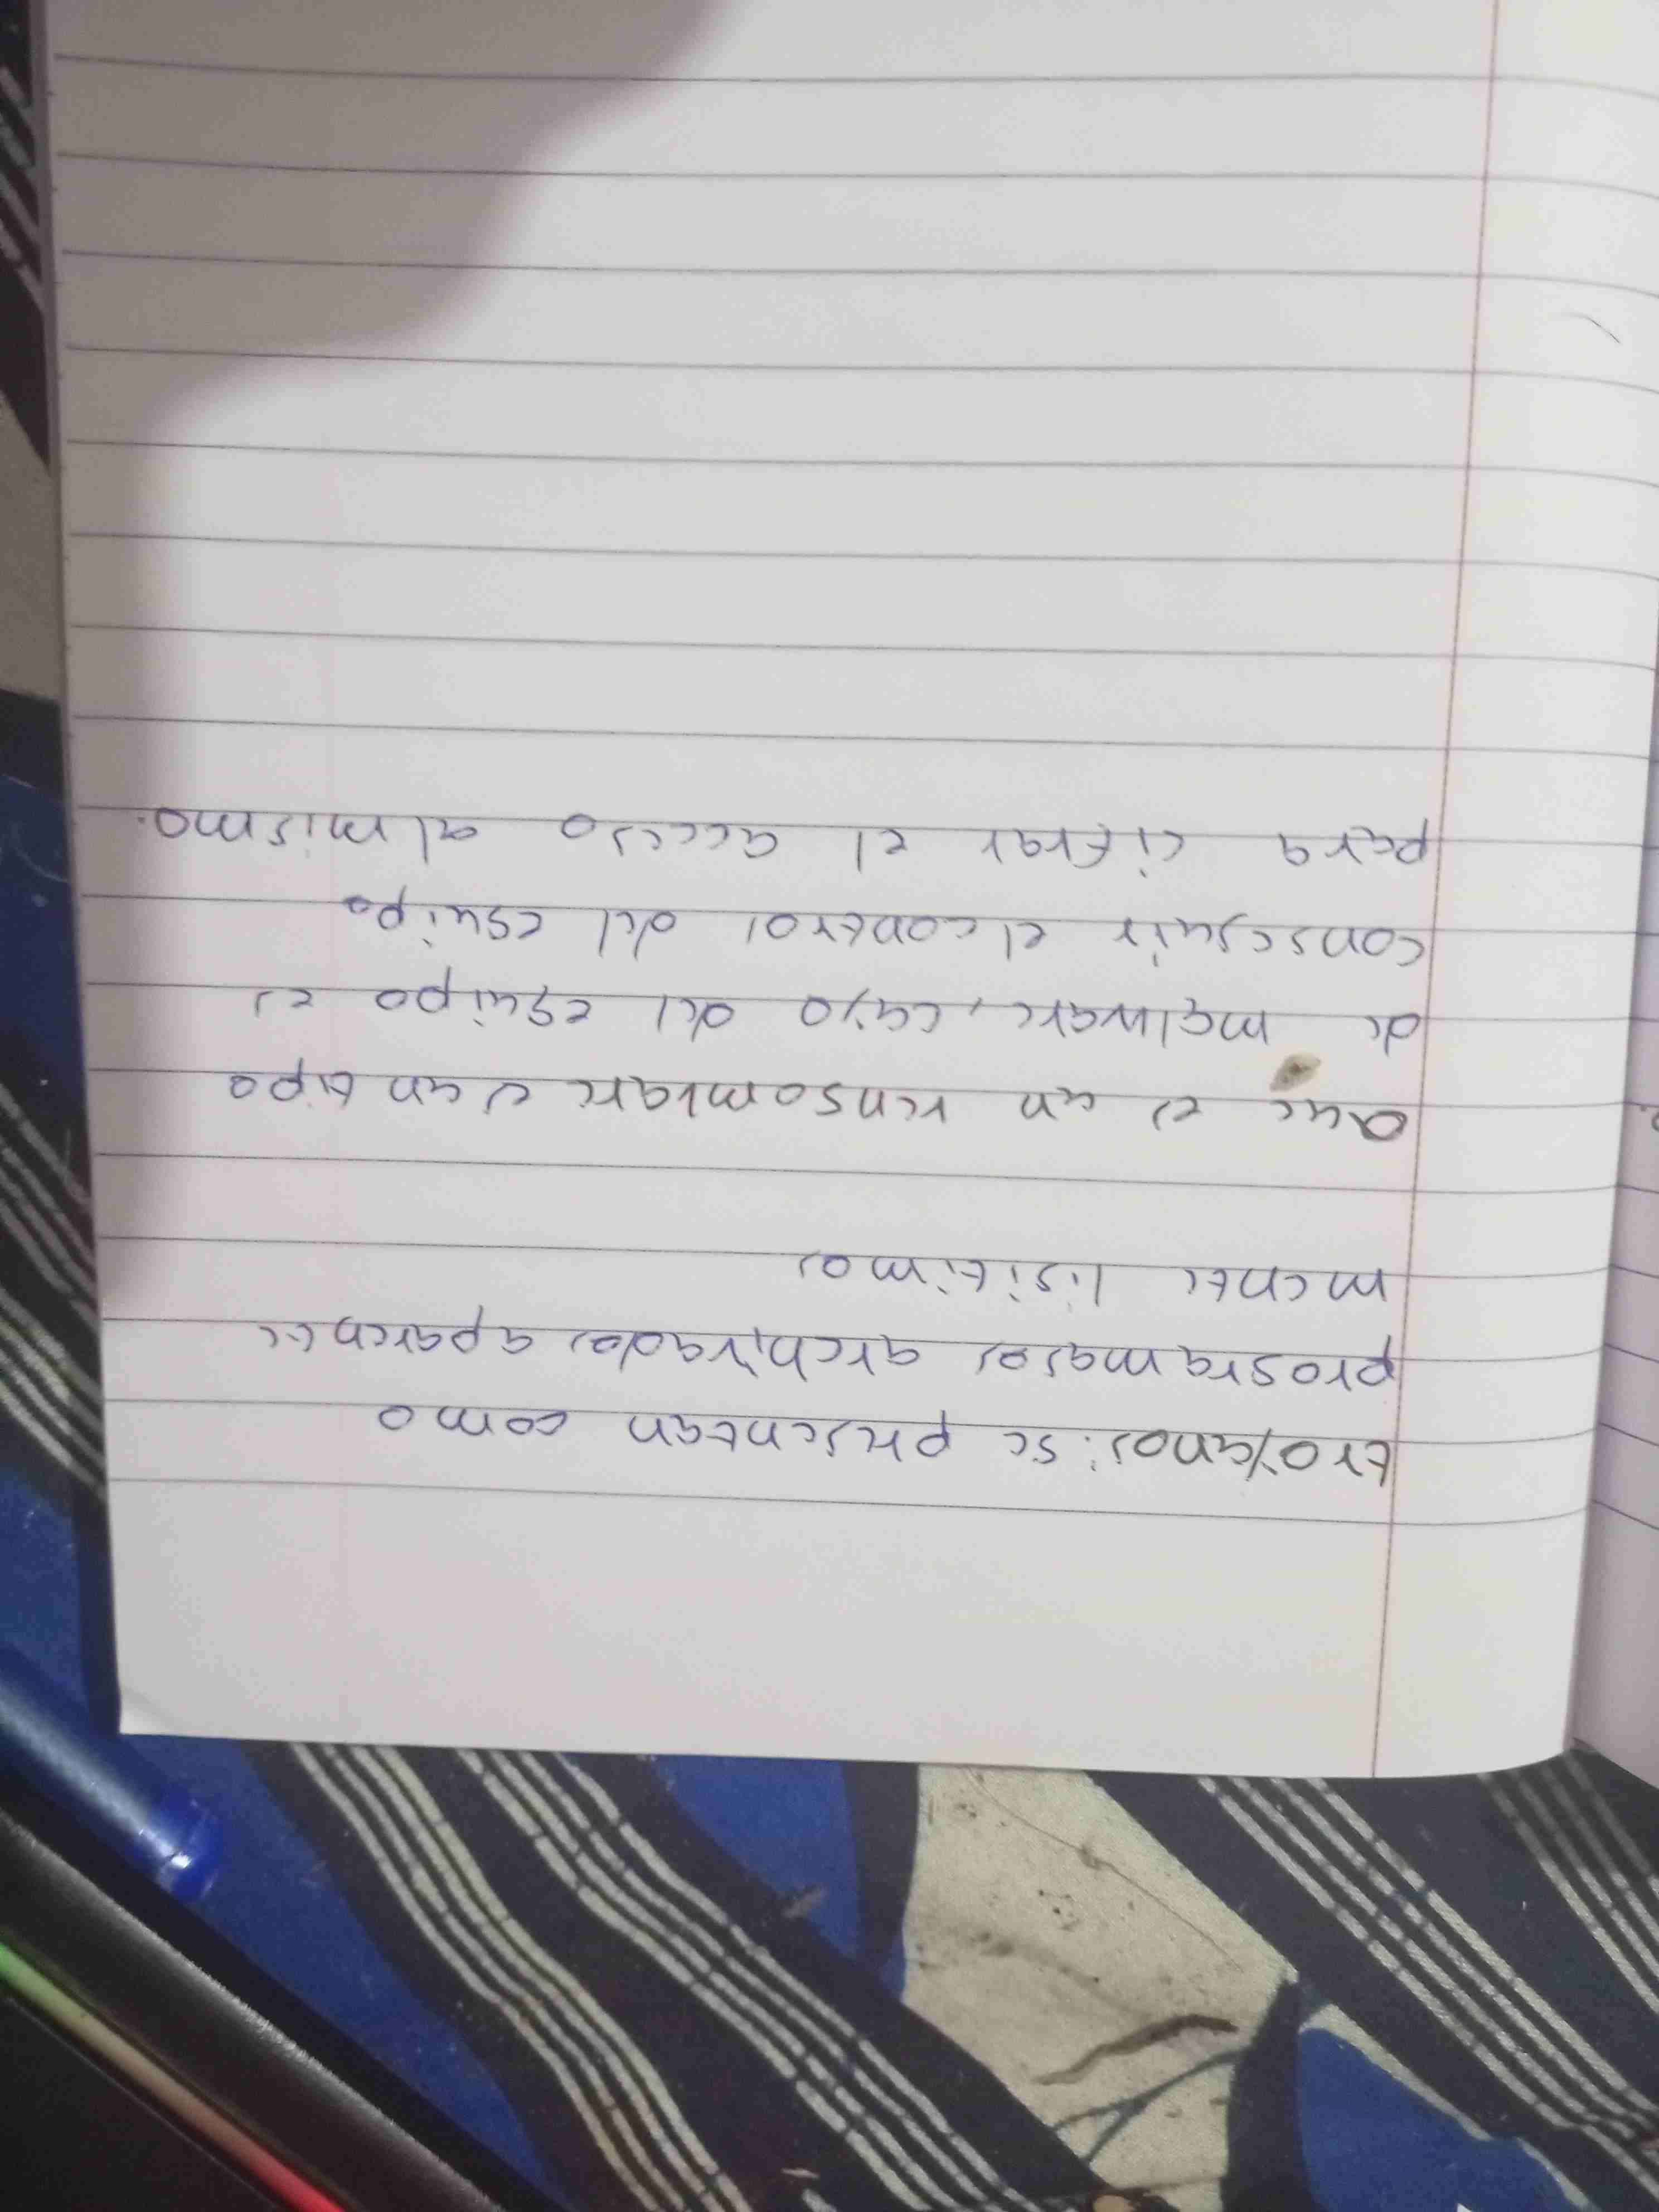 troyanos: se presentan como
programasos archivados aparente
mente ligitimos
que es un rensomware es un tipo
de malware, cuyo del equipo es
conseguir el control del equipo
para cifrar el acceso al mismo.